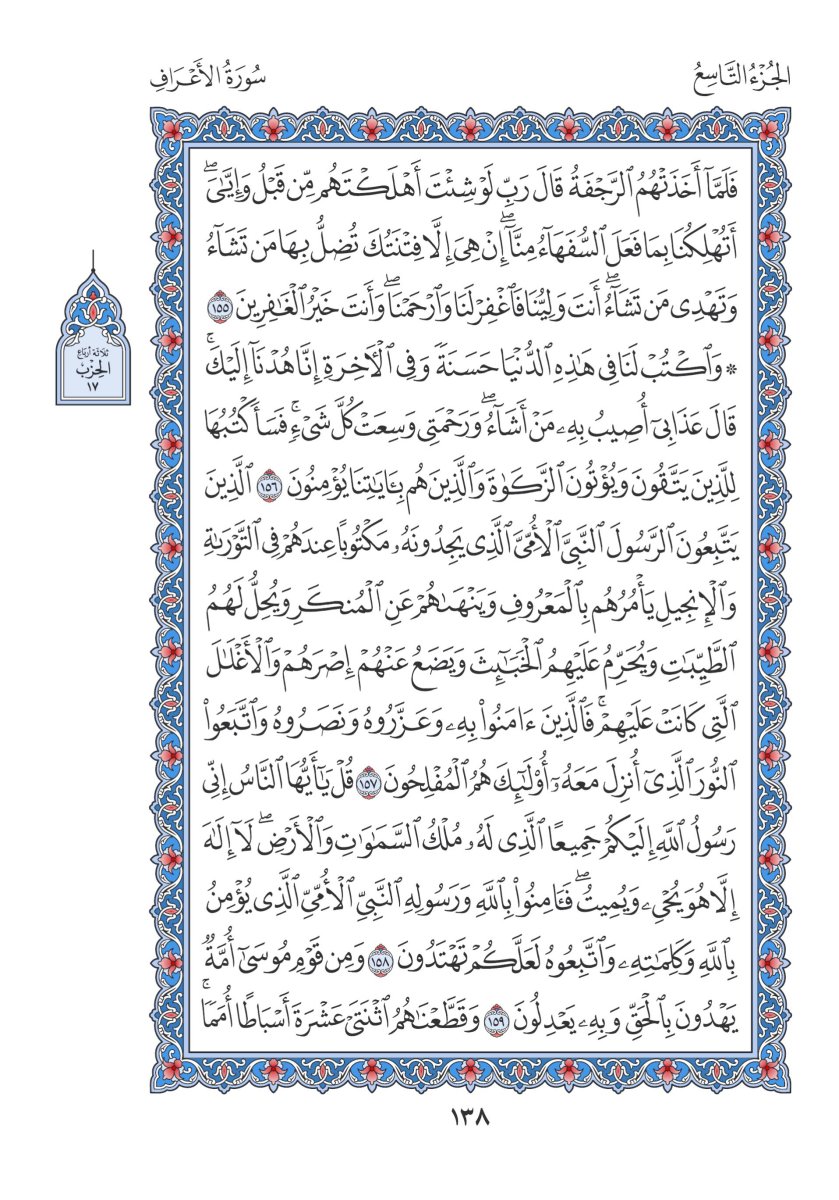 الجُزْءُ التَّاسِعُ
سُورَةُ الأَعْرَافِ
فَلَمَّآ أَخَذَتْهُمُ ٱلرَّجْفَةُ قَالَ رَبِّ لَوْ شِئْتَ أَهْلَكْتَهُم مِّن قَبْلُ وَإِيَّٰىَۖ
أَتُهْلِكُنَا بِمَا فَعَلَ ٱلسُّفَهَآءُ مِنَّآۖ إِنْ هِىَ إِلَّا فِتْنَتُكَ تُضِلُّ بِهَا مَن تَشَآءُ
وَتَهْدِى مَن تَشَآءُۖ أَنتَ وَلِيُّنَا فَٱغْفِرْ لَنَا وَٱرْحَمْنَاۖ وَأَنتَ خَيْرُ ٱلْغَٰفِرِينَ ١٥٥
* وَٱكْتُبْ لَنَا فِى هَٰذِهِ ٱلدُّنْيَا حَسَنَةً وَفِى ٱلْأٓخِرَةِ إِنَّا هُدْنَآ إِلَيْكَۚ
قَالَ عَذَابِىٓ أُصِيبُ بِهِۦ مَنْ أَشَآءُۖ وَرَحْمَتِى وَسِعَتْ كُلَّ شَىْءٍۚ فَسَأَكْتُبُهَا
لِلَّذِينَ يَتَّقُونَ وَيُؤْتُونَ ٱلزَّكَوٰةَ وَٱلَّذِينَ هُم بِـَٔايَٰتِنَا يُؤْمِنُونَ ١٥٦ ٱلَّذِينَ
يَتَّبِعُونَ ٱلرَّسُولَ ٱلنَّبِىَّ ٱلْأُمِّىَّ ٱلَّذِى يَجِدُونَهُۥ مَكْتُوبًا عِندَهُمْ فِى ٱلتَّوْرَىٰةِ
وَٱلْإِنجِيلِ يَأْمُرُهُم بِٱلْمَعْرُوفِ وَيَنْهَىٰهُمْ عَنِ ٱلْمُنكَرِ وَيُحِلُّ لَهُمُ
ٱلطَّيِّبَٰتِ وَيُحَرِّمُ عَلَيْهِمُ ٱلْخَبَٰٓئِثَ وَيَضَعُ عَنْهُمْ إِصْرَهُمْ وَٱلْأَغْلَٰلَ
ٱلَّتِى كَانَتْ عَلَيْهِمْۚ فَٱلَّذِينَ ءَامَنُوا۟ بِهِۦ وَعَزَّرُوهُ وَنَصَرُوهُ وَٱتَّبَعُوا۟
ٱلنُّورَ ٱلَّذِىٓ أُنزِلَ مَعَهُۥٓ أُو۟لَٰٓئِكَ هُمُ ٱلْمُفْلِحُونَ ١٥٧ قُلْ يَٰٓأَيُّهَا ٱلنَّاسُ إِنِّى
رَسُولُ ٱللَّهِ إِلَيْكُمْ جَمِيعًا ٱلَّذِى لَهُۥ مُلْكُ ٱلسَّمَٰوَٰتِ وَٱلْأَرْضِۖ لَآ إِلَٰهَ
إِلَّا هُوَ يُحْىِۦ وَيُمِيتُۖ فَـَٔامِنُوا۟ بِٱللَّهِ وَرَسُولِهِ ٱلنَّبِىِّ ٱلْأُمِّىِّ ٱلَّذِى يُؤْمِنُ
بِٱللَّهِ وَكَلِمَٰتِهِۦ وَٱتَّبِعُوهُ لَعَلَّكُمْ تَهْتَدُونَ ١٥٨ وَمِن قَوْمِ مُوسَىٰٓ أُمَّةٌ
يَهْدُونَ بِٱلْحَقِّ وَبِهِۦ يَعْدِلُونَ ١٥٩ وَقَطَّعْنَٰهُمُ ٱثْنَتَىْ عَشْرَةَ أَسْبَاطًا أُمَمًاۚ
ثلاثة أرباع
الحِزْب
١٧
١٣٨